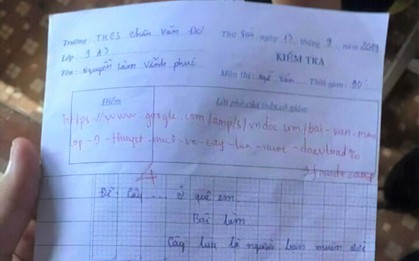 Trường THCS Chu Văn An
Thứ Sáu ngày 13 tháng 9 năm 2019
Lớp: 9A7
KIỂM TRA
Tên: Nguyễn Lâm Vĩnh Phúc
Môn thi: Ngữ văn Thời gian: 90'
Điểm
Lời phê của thầy cô giáo
https://www.google.com/amp/s/vndoc.com/bai-van-mau
lop-9-thuyet-minh-ve-cay-lua-nuoc-download%
3famode=amp
Đề: Cây ... ở quê em
Bài làm
Cây lúa là người bạn muôn đời